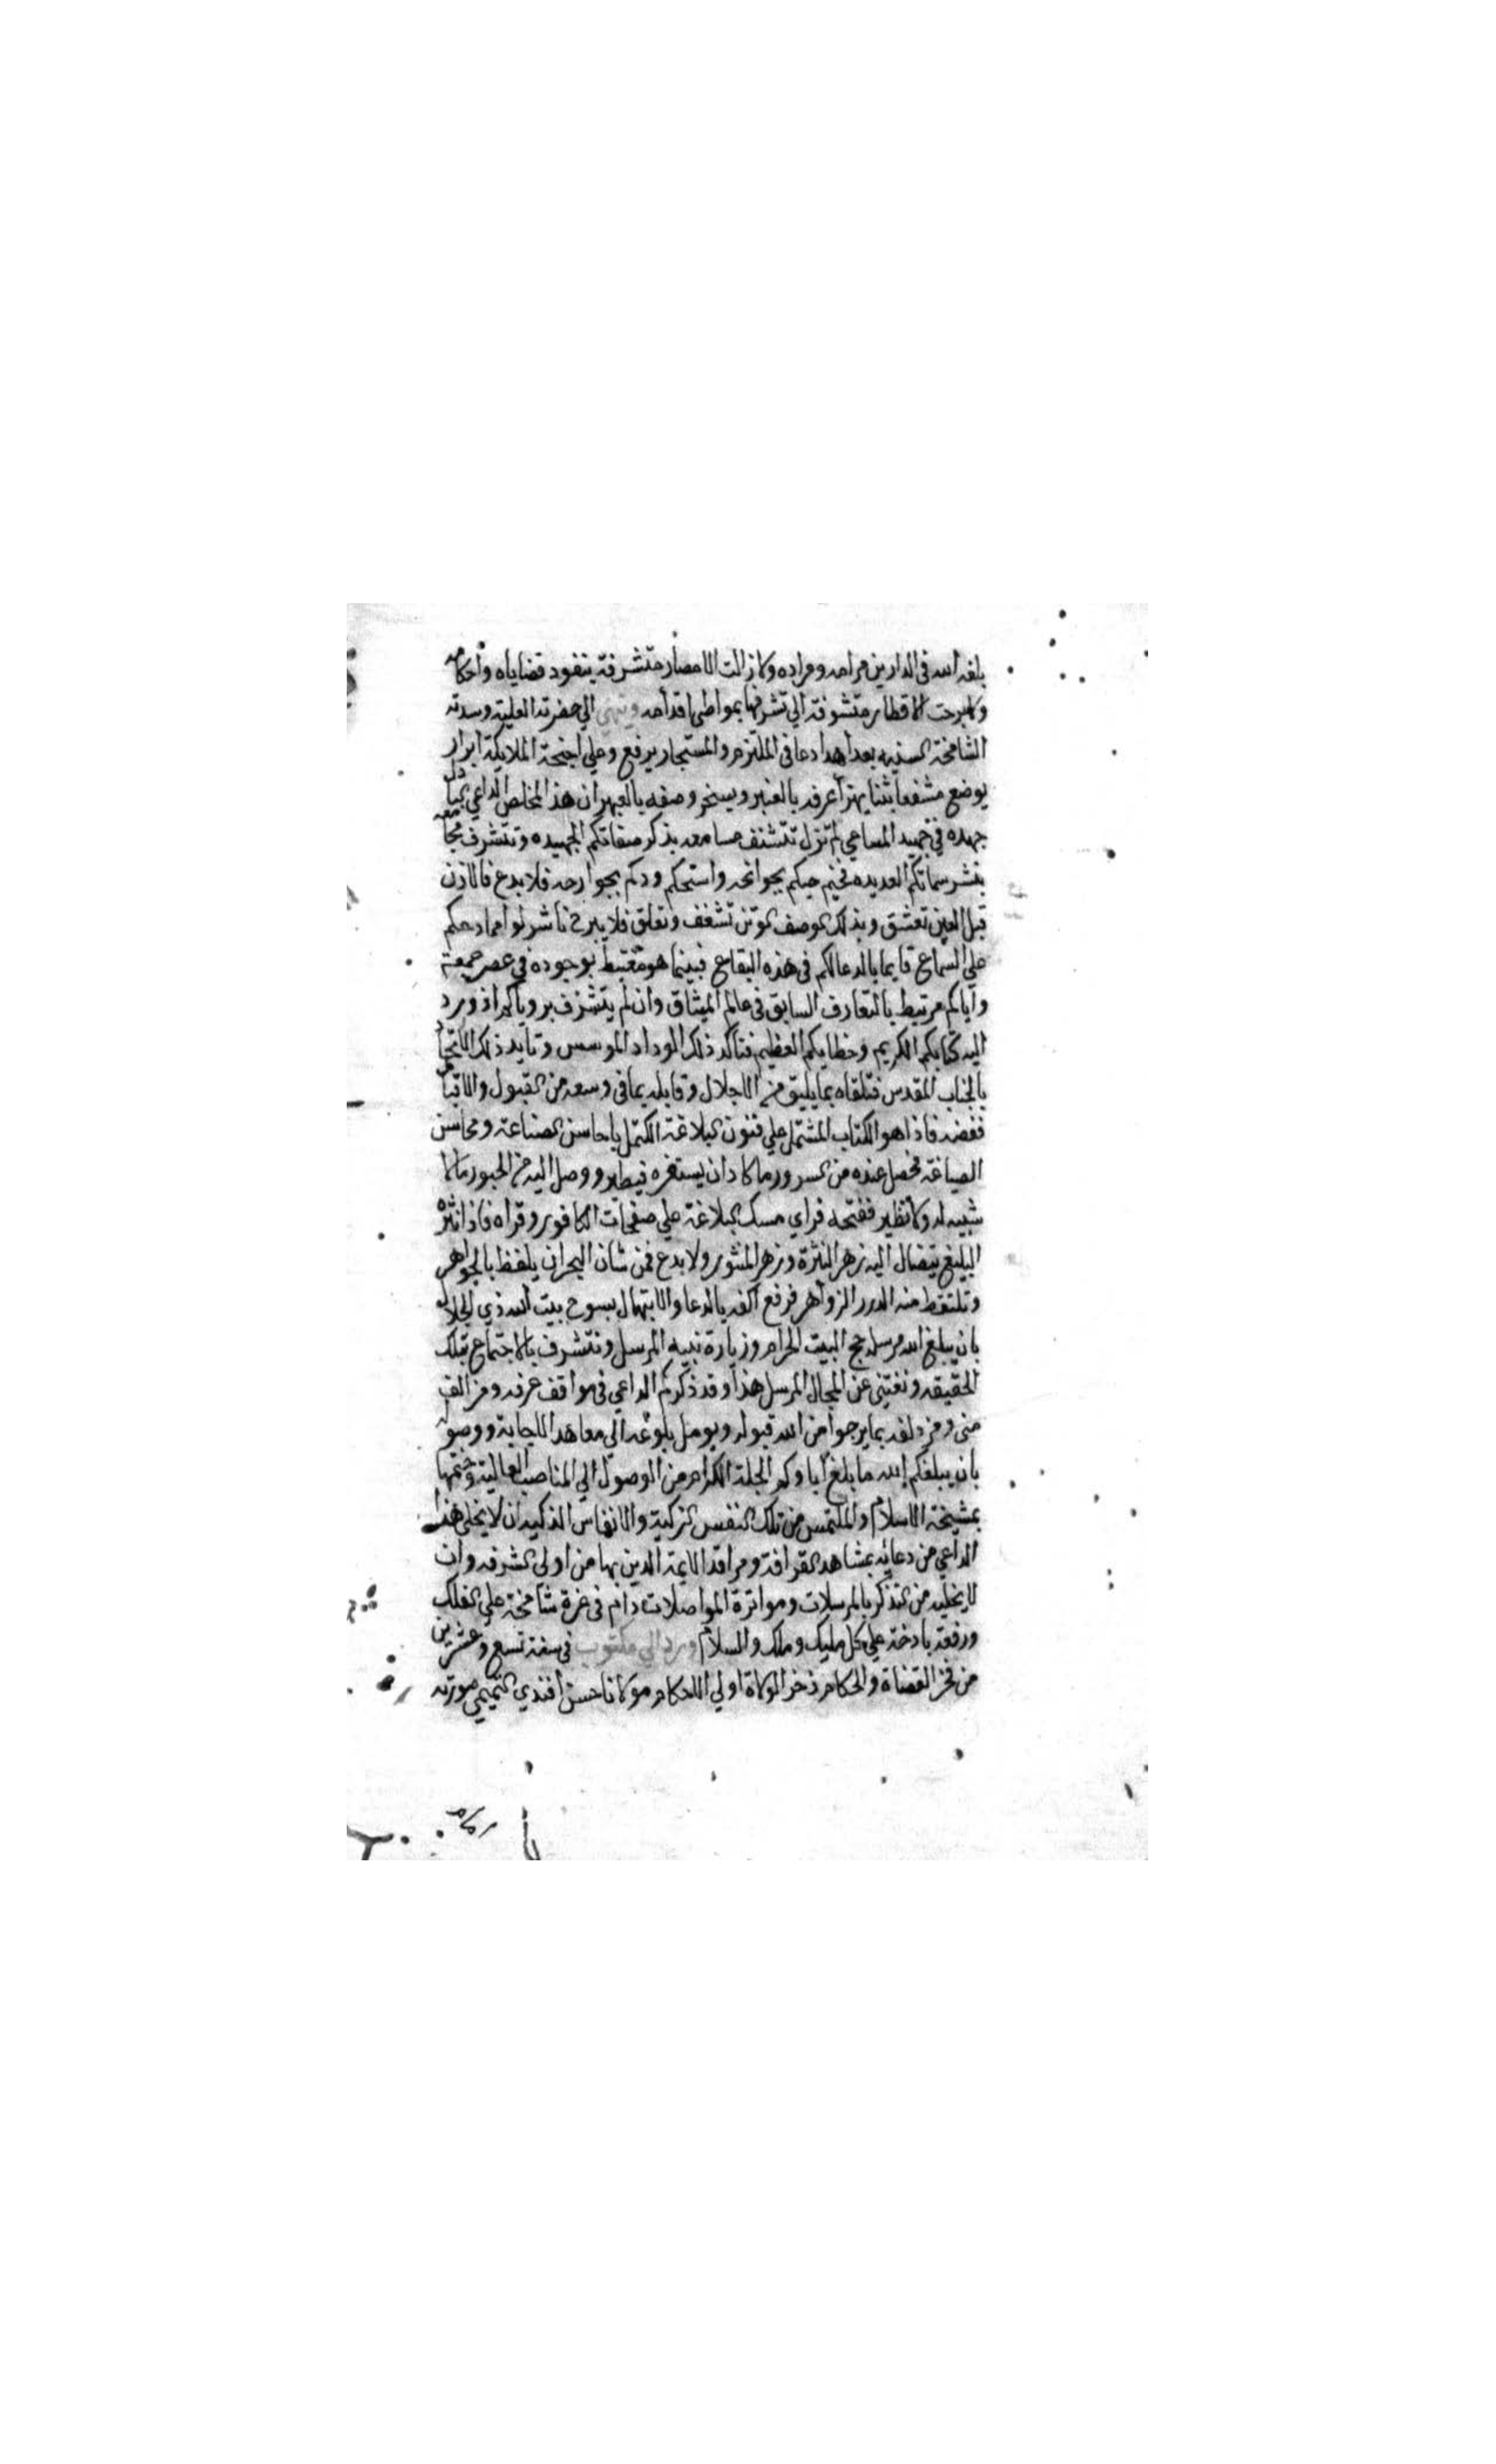 بلغه الله في الدارين مرامه ومراده ولازالت الامصار متشرفة بنفود قضاياه واحكامه
ولابرحت الاقطار متشوفة الي تشرفها بمواطي اقدامه وينهي الي حضرته العلية وسدته
الشامخة السنيه بعد اهدا دعا في الملتزم والمستجار يرفع وعلي اجنحة الملايكة ابرار
يوضع مشفعا بثنا يهزأ عرفه بالعنبر ويسخر وصفه بالعبهر ان هذا المخلص الداعي الباذل
جهده في جميد المساعي لم تزل تتشنف مسامعه بذكر صفاتكم الحميده وتتشرف مجامعه
بنشر سماتكم العديده فخيم حبكم بجوانحه واستحكم ودكم بجوارحه فلا بدع فالاذن
قبل العين تعشق وبذلك الوصف تشغف وتعلق فلا يبرح ناشر لوا محامدحكم
علي السماع قايما بالدعا لكم في هذه البقاع فبينما هو مغتبط بوجوده في عصر جمعه
واياكم مرتبط بالتعارف السابق في عالم الميثاق وان لم يتشرف برؤياكم اذ ورد
اليه كتابكم الكريم وخطابكم العظيم فتاكد ذلك الوداد الموسس وتايد ذلك الاتحاد
بالجناب المقدس فتلقاه بما يليق من الاجلال وقابله بما في وسعه من القبول والاقبال
ففضه فاذا هو الكتاب المشتمل علي فنون البلاغة المكتمل باحاسن الصناعة ومحاسن
الصياغة فحصل عنده من السرور ما كاد ان يستفزه فيطير ووصل اليه من الحبور مالا
شبيه له ولانظير ففتحه فراي مسك البلاغة علي صفحات الكافور وقراه فاذا نثره
البليغ يتضال اليه زهر النثرة وزهر المنثور ولا بدع فمن شان البحر ان يلفظ بالجواهر
وتلتقط منه الدرر الزواهر فرفع اكفه بالدعا والابتهال بسوح بيت الله ذي الجلال
بان يبلغ الله مرسله حج البيت الحرام وزيارة نبيه المرسل ونتشرف بالاجتماع بتلك
الحقيقه ونغتني عن المجال المرسل هذا وقد ذكركم الداعي في مواقف عرفه ومزالف
مني ومزدلفه بما يرجوا من الله قبوله ويومل بلوغه الي معاهد الايجابة ووصوله
بان يبلغكم الله ما بلغ اباوكم الجلة الكرام من الوصول الي المناصب العالية وختمها
بمشيخة الاسلام والملتمس من تلك النفس الزكية والانفاس الذكيه ان لا يخلي هذا
الداعي من دعائه بمشاهد القرافة ومراقد الايمة الدين بها من اولي الشرفه وان
لا يخليه من التذكر بالمرسلات ومواترة المواصلات دام في عزة شامخة علي الفلك
ورفعة بادخة علي كل مليك وملك والسلام ورد الي مكتوب في سنة تسع وعشرين
من فخر القضاة والحكام ذخر الولاة اولي الاحكام مولانا حسن افندي التميمي صورته